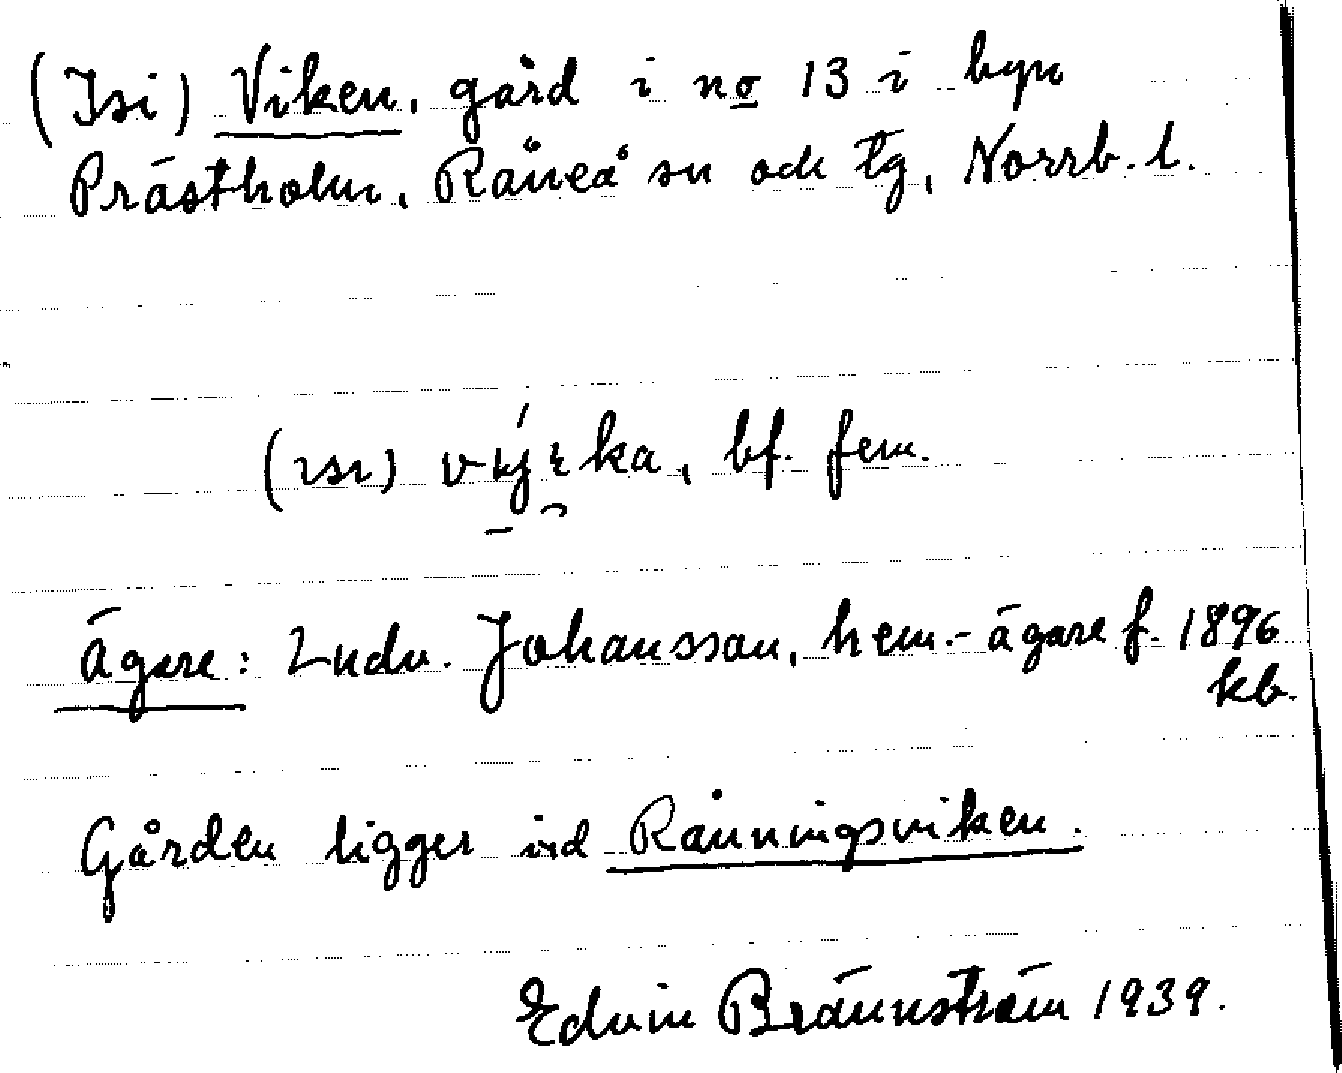 (Isi) Viken, gård i no 13 i byn
Prästholm, Råneå sn och tg, Norrb. l.
(ısı) ka, bf. fem.
Ägare: Ludv. Johansson, hem.-ägare f. 1896
kb.
Gården ligger vid Rånningsviken.
Edvin Brännström 1939.